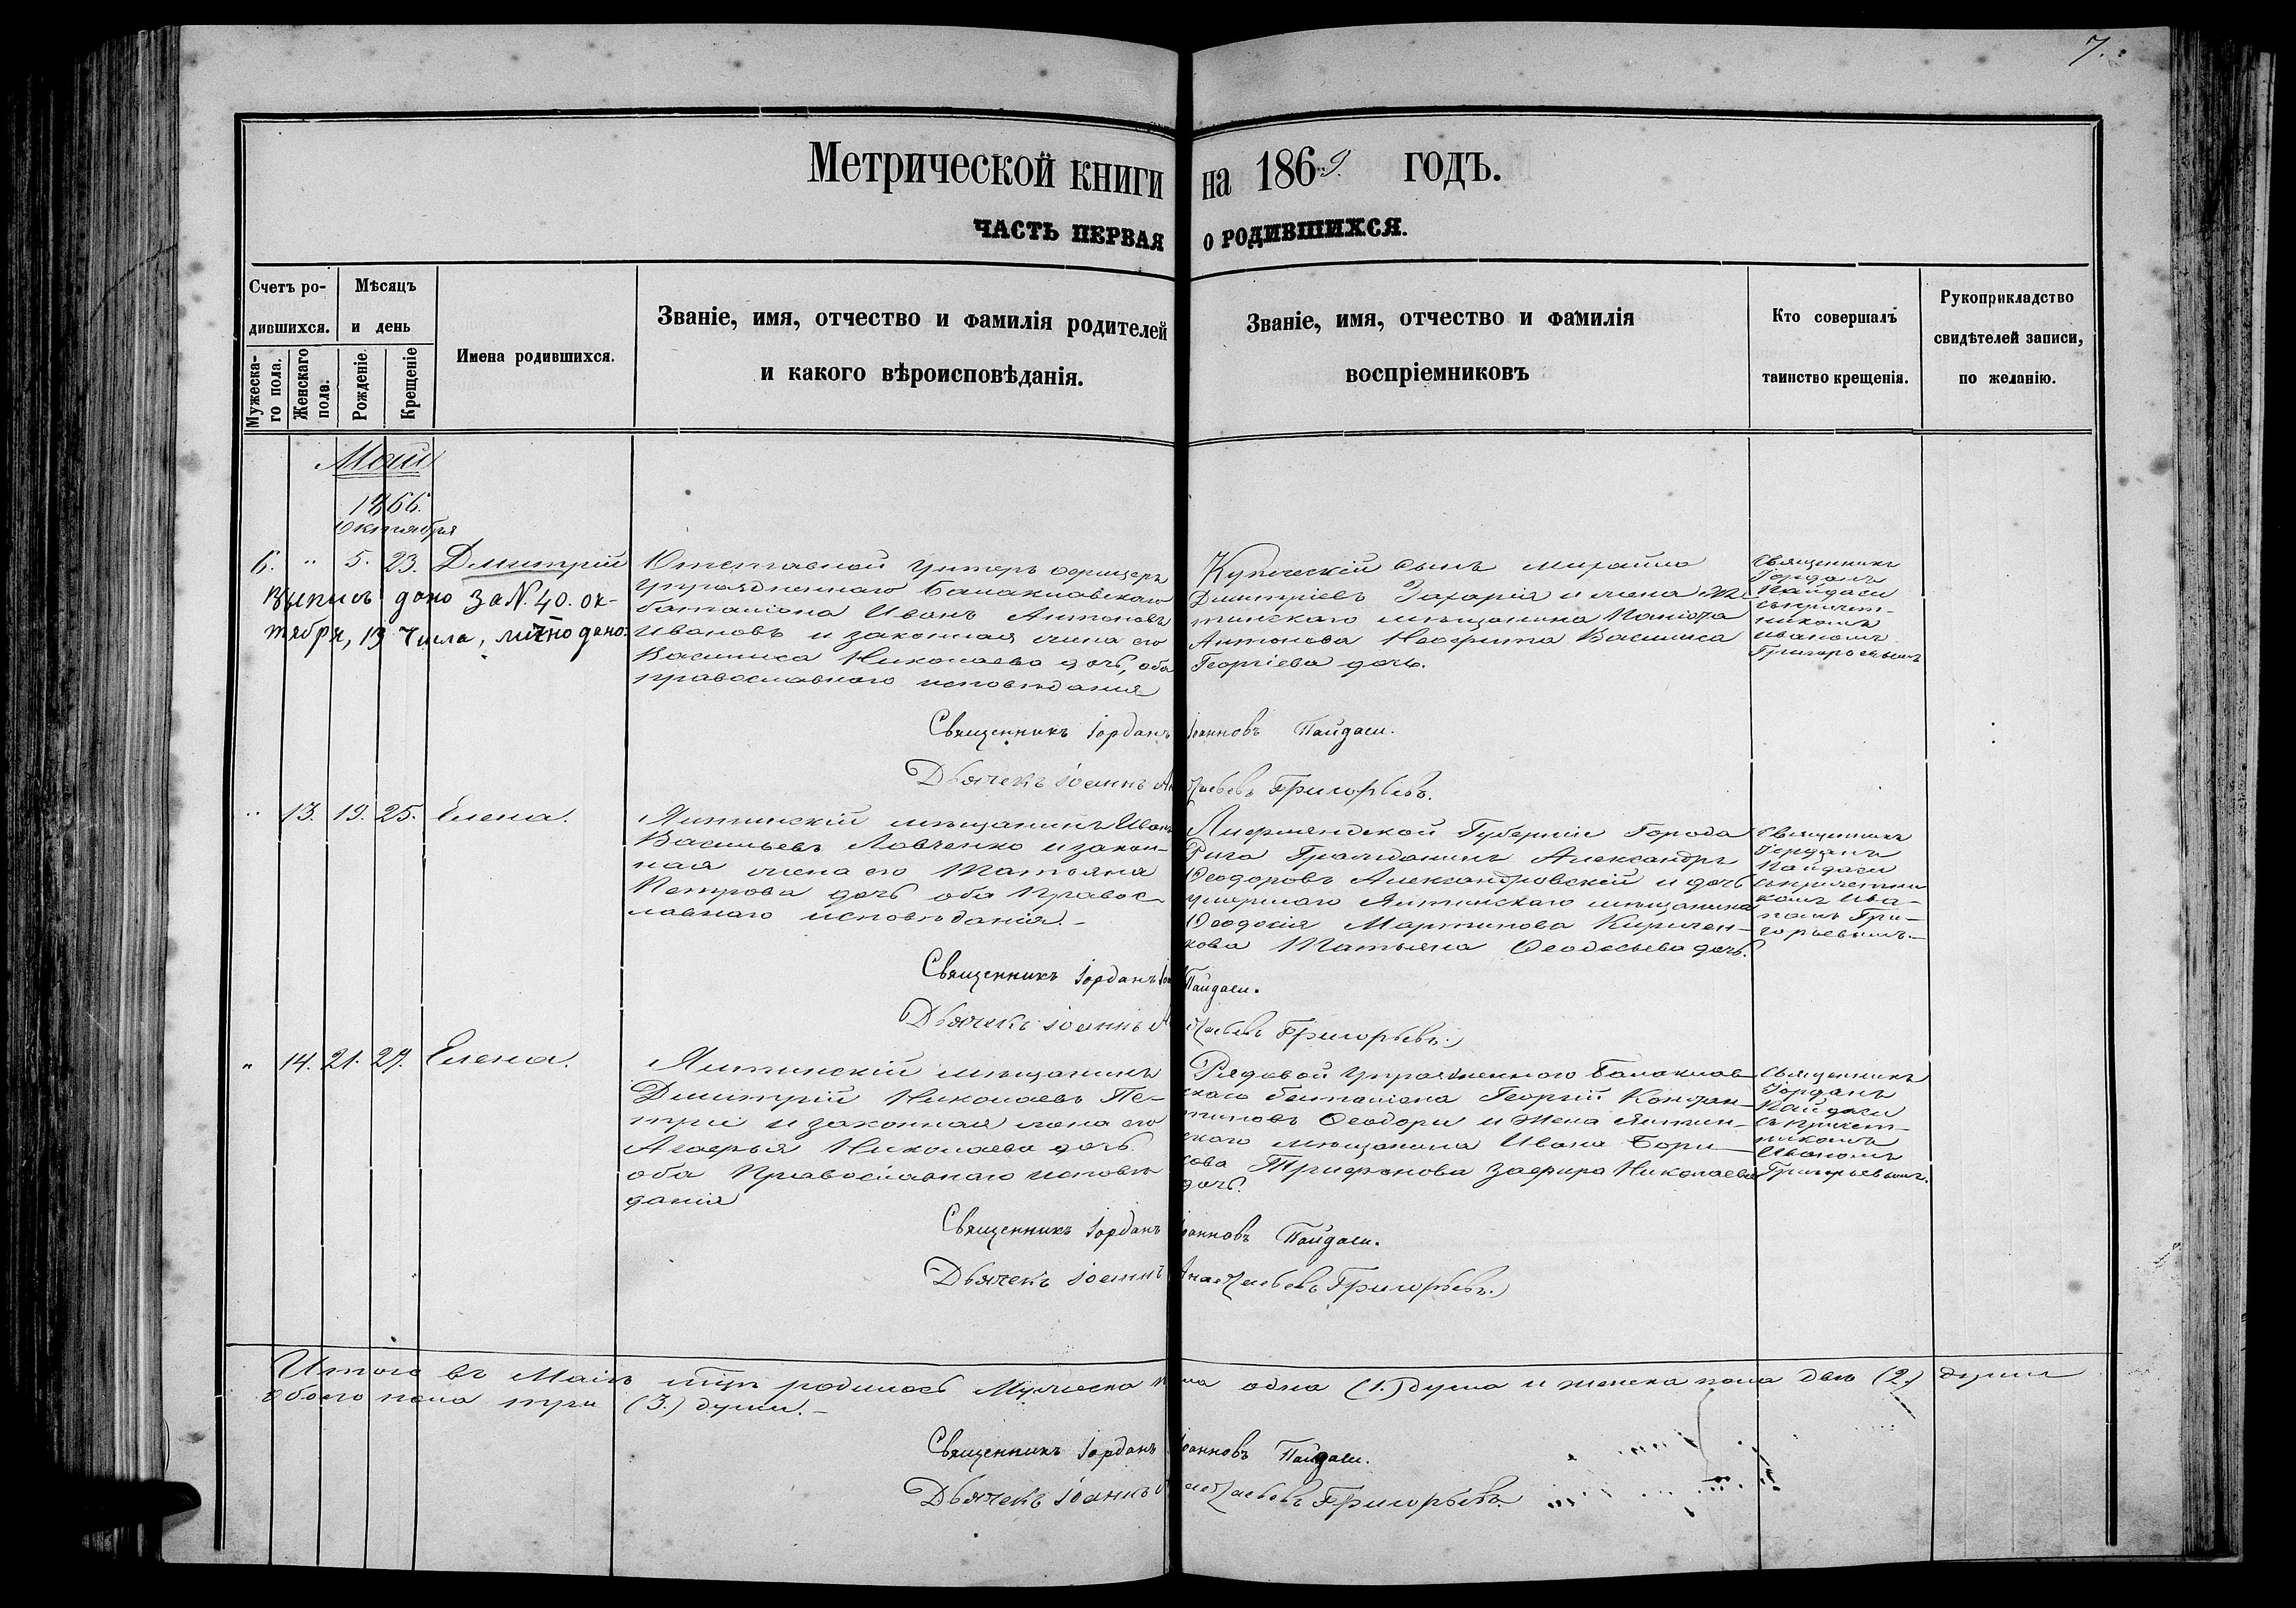 7.
Метрической книги на 1869. годъ.
ЧАСТЬ ПЕРВАЯ О РОДИВШИХСЯ.
Счетъ ро-
дившихся.
Мужеска-
го пола.
Женскаго
пола.
Мѣсяцъ
и день
Рожденіе.
Крещеніе
Имена родившихся.
Званіе, имя, отчество и фамилія родителей
и какого вѣроисповѣданія.
Званіе, имя, отчество и фамилія
воспріемниковъ
Кто совершалъ
таинство крещенія.
Рукоприкладство
свидѣтелей записи,
по желанію.
Май
1866.
Октября
6. " 5. 23. Дмитрій
Выпись дано за N. 40. ок-
тября, 13 числа, лично дано.
Отставной Унтеръ офицеръ
Упраздненнаго Балаклавскаго
баталіона Иванъ Антоновъ
Ивановъ и законная жена его
Василиса Николаева дочь, оба
православнаго исповѣданія
Купеческій сынъ Михаилъ
Дмитріевъ Захарія и жена Ял-
тинскаго мѣщанина
Антонова Неофита Василиса
Георгіева дочь.
Священникъ
Іорданъ
Пайдаси
съ причет-
никомъ
Иваномъ
Григорьевымъ
Священникъ Іорданъ Іоанновъ Пайдаси.
Дьячекъ Іоаннъ Григорьевъ.
" 13. 19. 25. Елена.
Ялтинскій мѣщанинъ Иванъ
Васильевъ Ловченко и закон-
ная жена его Татьяна
Петрова дочь оба Правос-
лавнаго исповѣданія.-
Лифляндской Губерніи Города
Рига Гражданинъ Александръ
Ѳеодоровъ Александровскій и дочь
умершаго Ялтинскаго мѣщанина
Ѳеодосія Мартинова Киричен-
кова Татьяна Ѳеодосьева дочь.
Священникъ
Іорданъ
Пайдаси
съ причетни
комъ Ива-
номъ Гри-
горьевымъ.-
Священникъ Іорданъ Пайдаси.
Дьячекъ Іоаннъ Григорьевъ.
" 14. 21. 29. Елена.
Ялтинскій мѣщанинъ
Дмитрій Николаевъ Пе-
три и законная жена его
Агафья Николаева дочь
оба Православнаго исповѣ
данія
Рядовой Упраздненнаго Балаклав-
скаго баталіона Георгій Констан-
тиновъ Ѳеодори и Жена Ялтин-
скаго мѣщанина Ивана Бори-
сова Трифонова Зафира Николаева
дочь.
Священникъ
Іорданъ
Пайдаси
съ причет-
никомъ
Иваномъ
Григорьевымъ.
Священникъ Іорданъ Іоанновъ Пайдаси.
Дьячекъ Іоаннъ Григорьевъ.
Итого въ Маіѣ родилось Мужеска пола одна (1.) душа и женска пола двѣ (2.) души
Обоего пола три (3.) души.-
Священникъ Іорданъ Іоанновъ Пайдаси.
Дьячекъ Іоаннъ Григорьевъ.